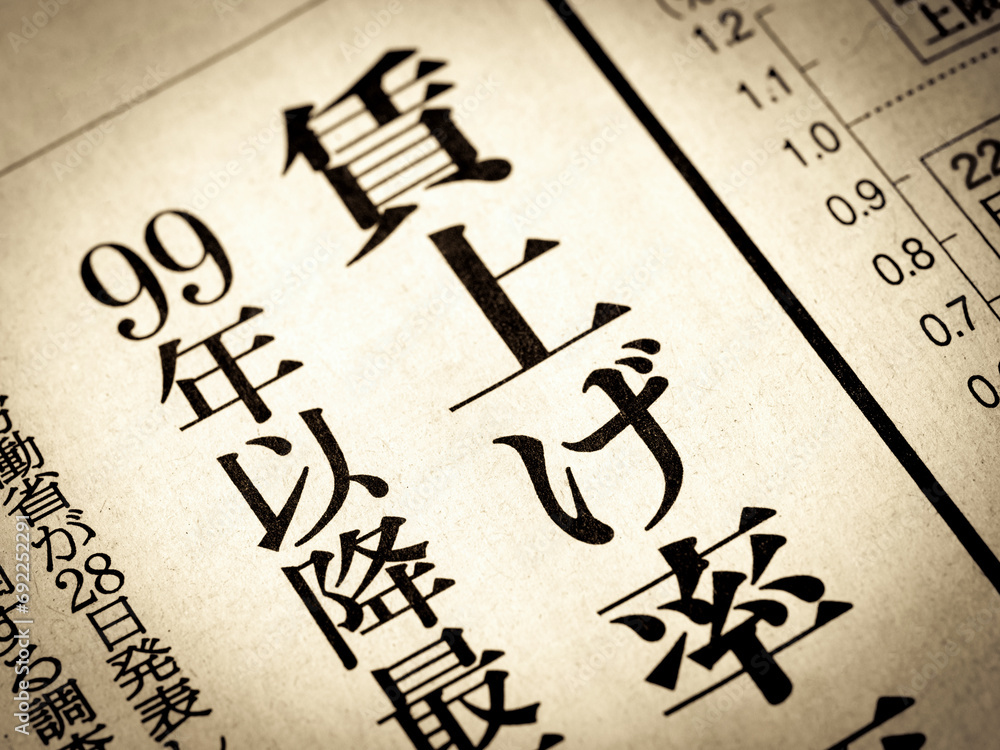 1.2
1.1
1.0
0.9
0.8
0.7
22
賃上げ率
99年以降最
働省が28日発表
する調査
Adobe Stock | #692252291